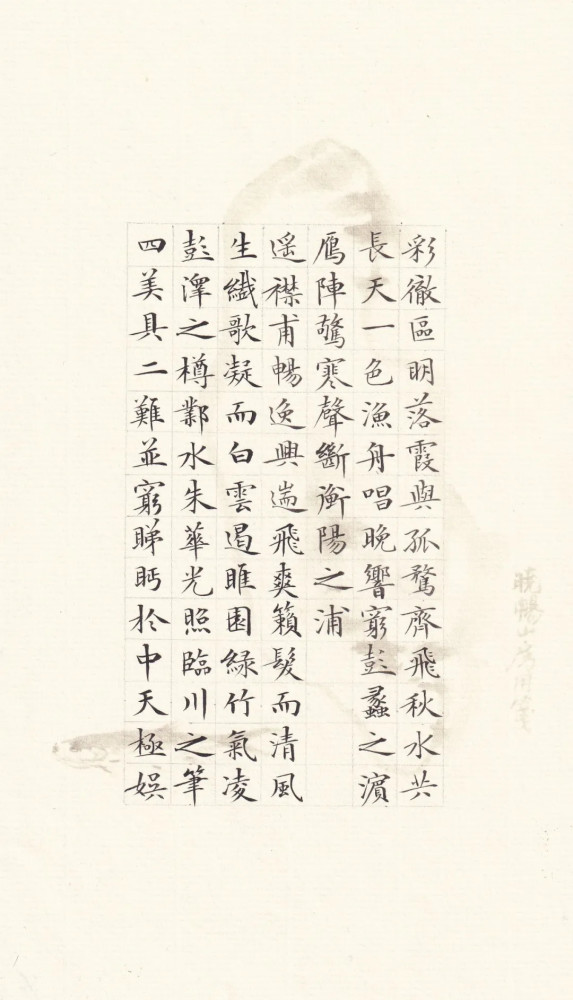 彩徹區明落霞與孤鶩齊飛秋水共
長天一色漁舟唱晚響窮彭蠡之濵
鴈陣驚寒聲斷衡陽之浦
遥襟甫暢逸興遄飛爽籟髮而清風
生纖歌凝而白雲遏睢園緑竹氣凌
彭澤之樽鄴水朱華光照臨川之筆
四美具二難並窮睇眄於中天極娱
山房用箋